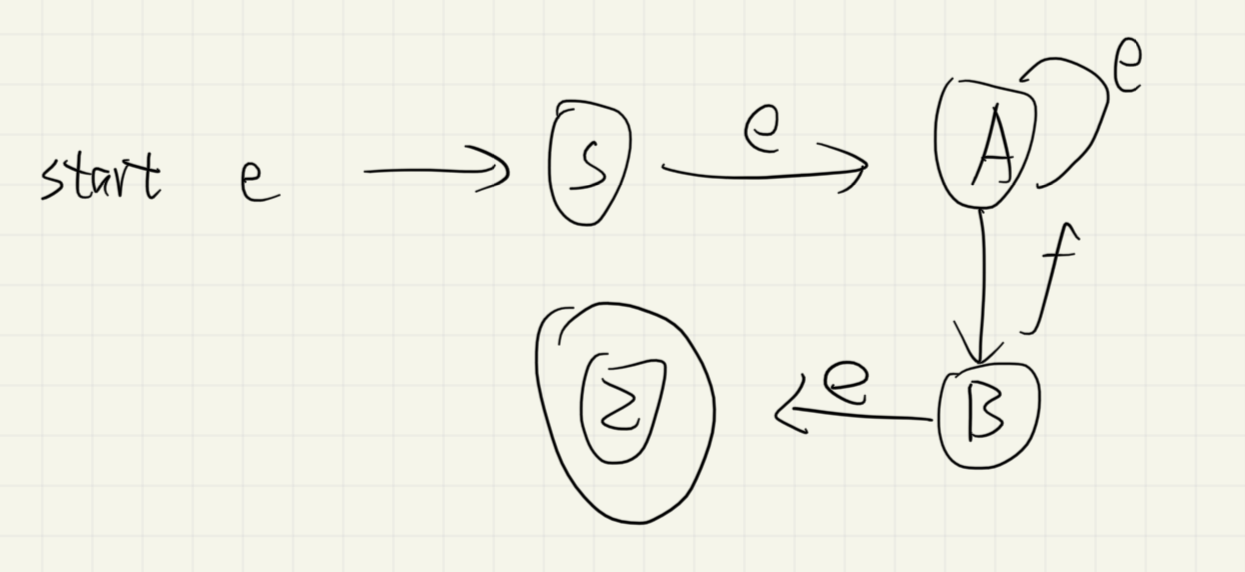 start e S e A e
f
Σ e B